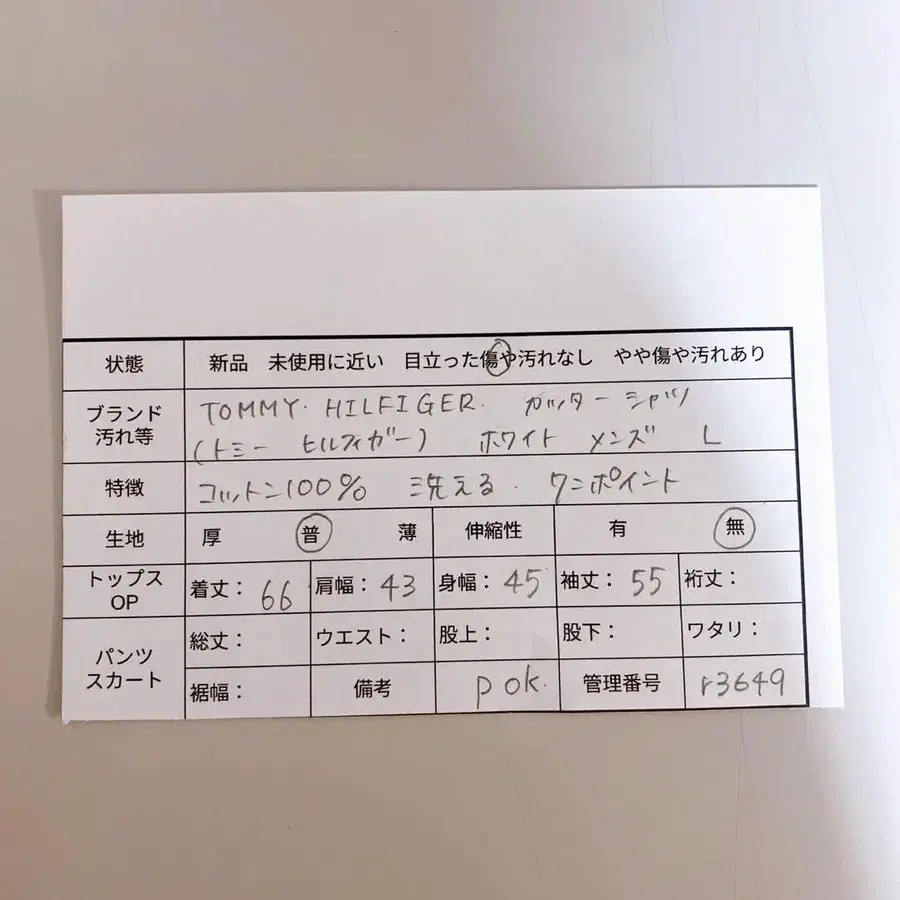 状態 新品 未使用に近い 目立った傷や汚れなし やや傷や汚れあり
ブランド 汚れ等 TOMMY. HILFIGER. カッターシャツ
(トミー ヒルフィガー) ホワイト メンズ L
特徴 コットン100% 洗える. ワンポイント
生地 厚 普 薄 伸縮性 有 無
トップス OP 着丈: 66 肩幅: 43 身幅: 45 袖丈: 55 裄丈:
パンツ スカート 総丈: ウエスト: 股上: 股下: ワタリ:
裾幅: 備考 P ok. 管理番号 r3649